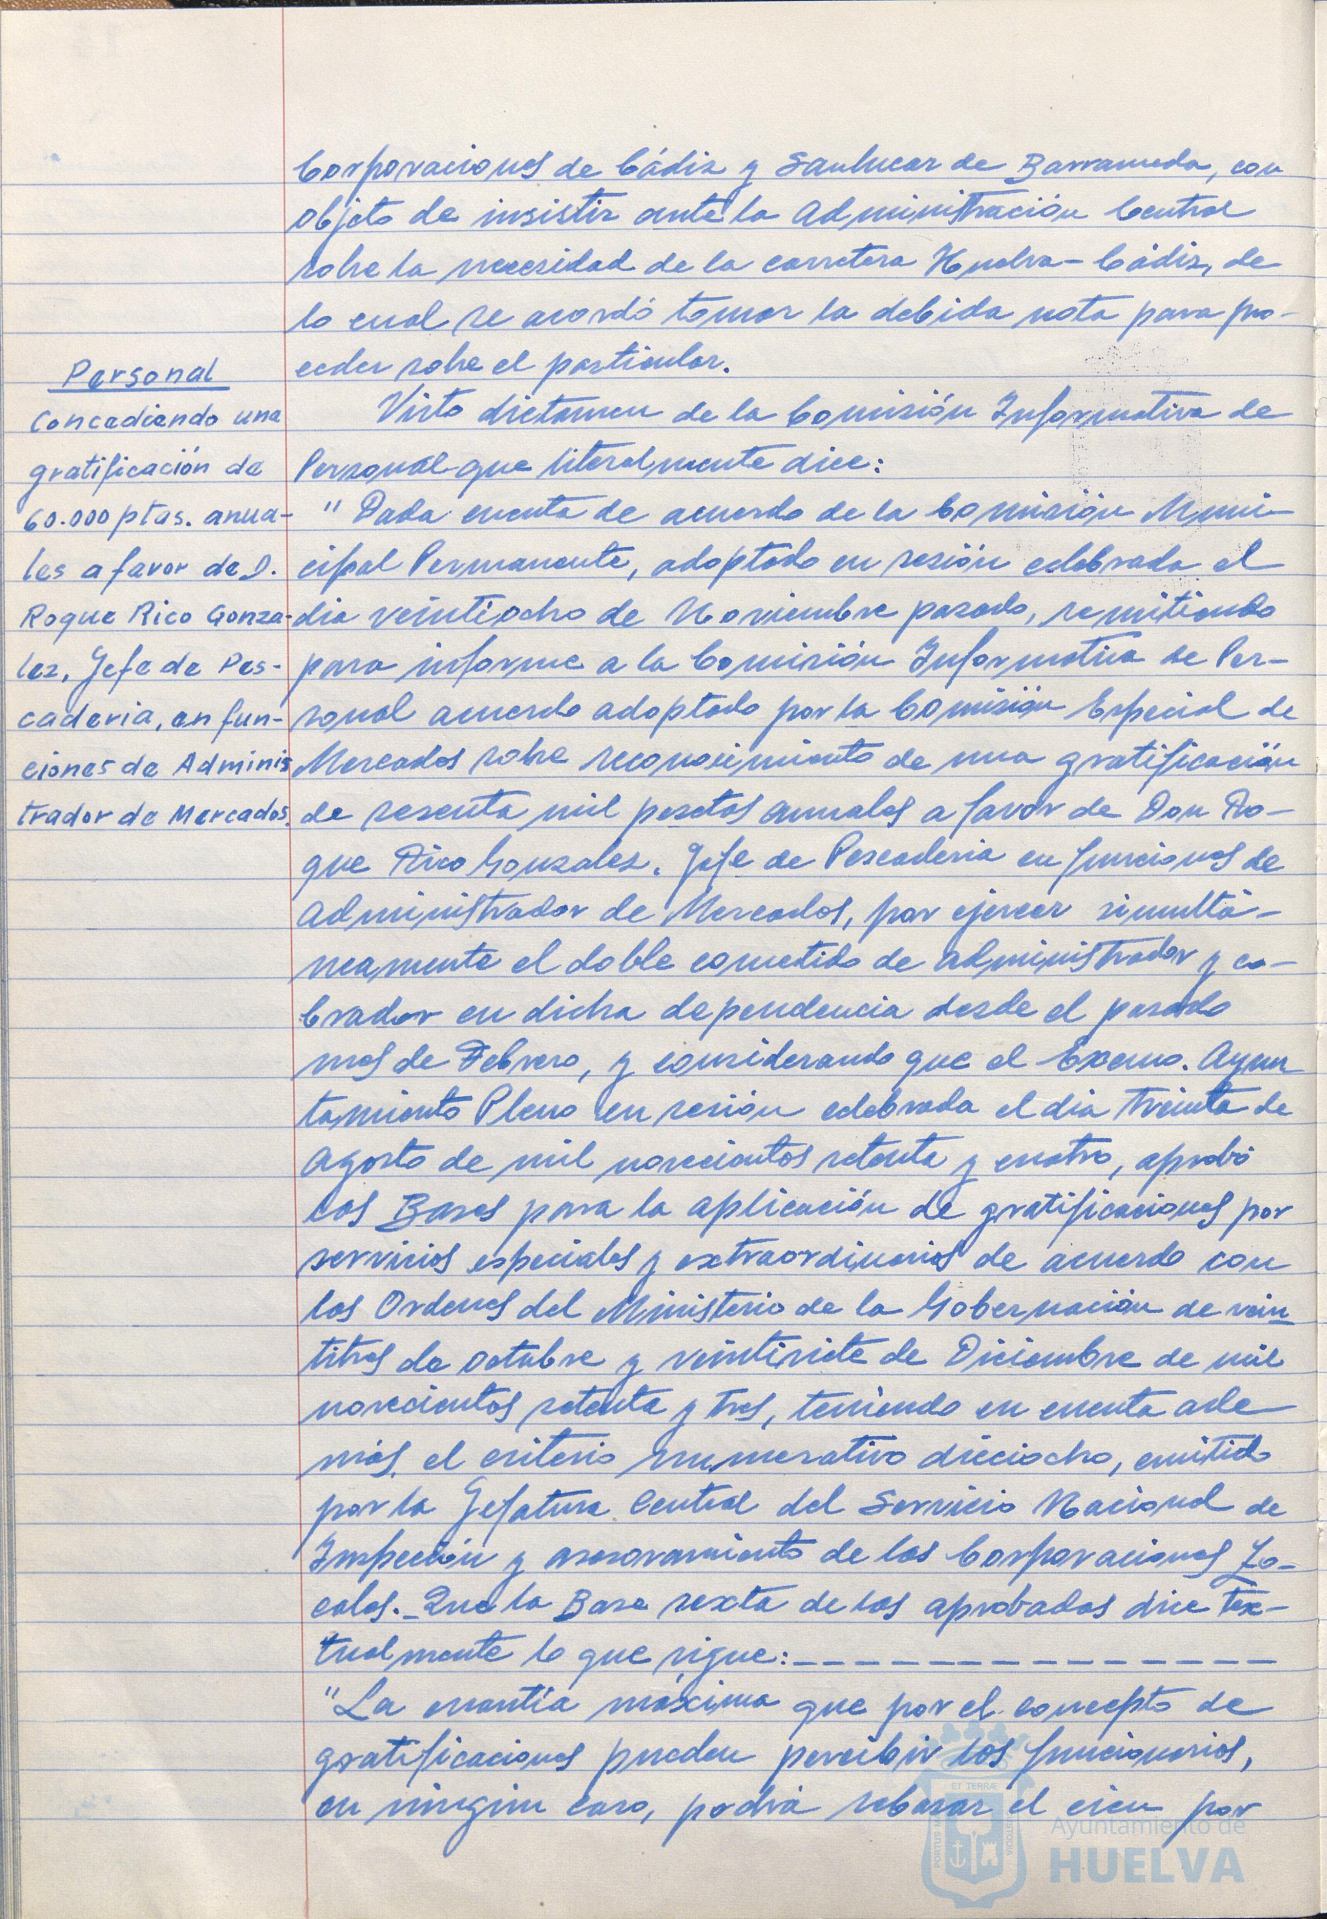 Corporaciones de Cádiz y Sanlucar de Barrameda, con
objeto de insistir ante la Administración Central
sobre la necesidad de la carretera Huelva-Cádiz, de
lo cual se acordó tomar la debida nota para pro-
ceder sobre el particular.
Personal
Concediendo una
gratificación de
60.000 ptas. anua-
les a favor de D.
Roque Rico Gonza-
lez, Jefe de Pes-
caderia, en fun-
ciones de Adminis
trador de Mercados.
Visto dictamen de la Comisión Informativa de
Personal que literalmente dice:
"Dada cuenta de acuerdo de la Comisión Muni-
cipal Permanente, adoptado en sesión celebrada el
dia veintiocho de Noviembre pasado, remitiendo
para informe a la Comisión Informativa de Per-
sonal acuerdo adoptado por la Comisión Especial de
Mercados sobre reconocimiento de una gratificación
de sesenta mil pesetas anuales a favor de Don Ro-
que Rico Gonzalez, Jefe de Pescaderia en funciones de
Administrador de Mercados, por ejercer simultá-
neamente el doble cometido de administrador y co-
brador en dicha dependencia desde el pasado
mes de Febrero, y considerando que el Excmo. Ayun
tamiento Pleno en sesión celebrada el dia treinta de
Agosto de mil novecientos setenta y cuatro, aprobó
las Bases para la aplicación de gratificaciones por
servicios especiales y extraordinarios de acuerdo con
las Ordenes del Ministerio de la Gobernación de vein
titres de octubre y veintisiete de Diciembre de mil
novecientos setenta y tres, teniendo en cuenta ade
más, el criterio enumerativo dieciocho, emitido
por la Jefatura Central del Servicio Nacional de
Inspección y asesoramiento de las Corporaciones Lo-
cales._ Que la Base sexta de las aprobadas dice tex-
tualmente lo que sigue:_ _ _ _ _ _ _ _ _ _ _ _ _ _ _
"La cuantía máxima que por el concepto de
gratificaciones pueden percibir los funcionarios,
en ningun caso, podrá rebasar el cien por
ET TERRÆ
PORTUS M
CUSTODIA
Ayuntamiento de
HUELVA